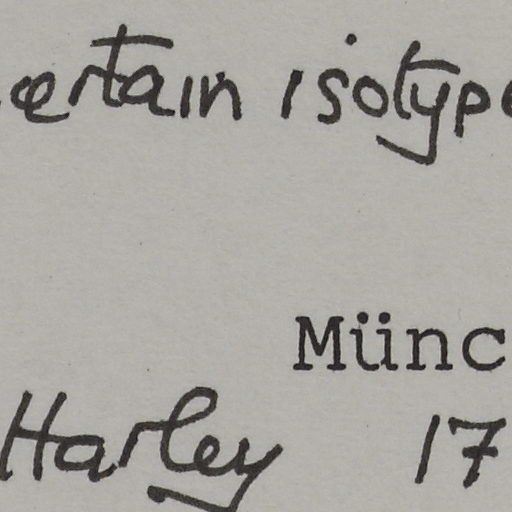 certain isotype
Münc
Harley 17